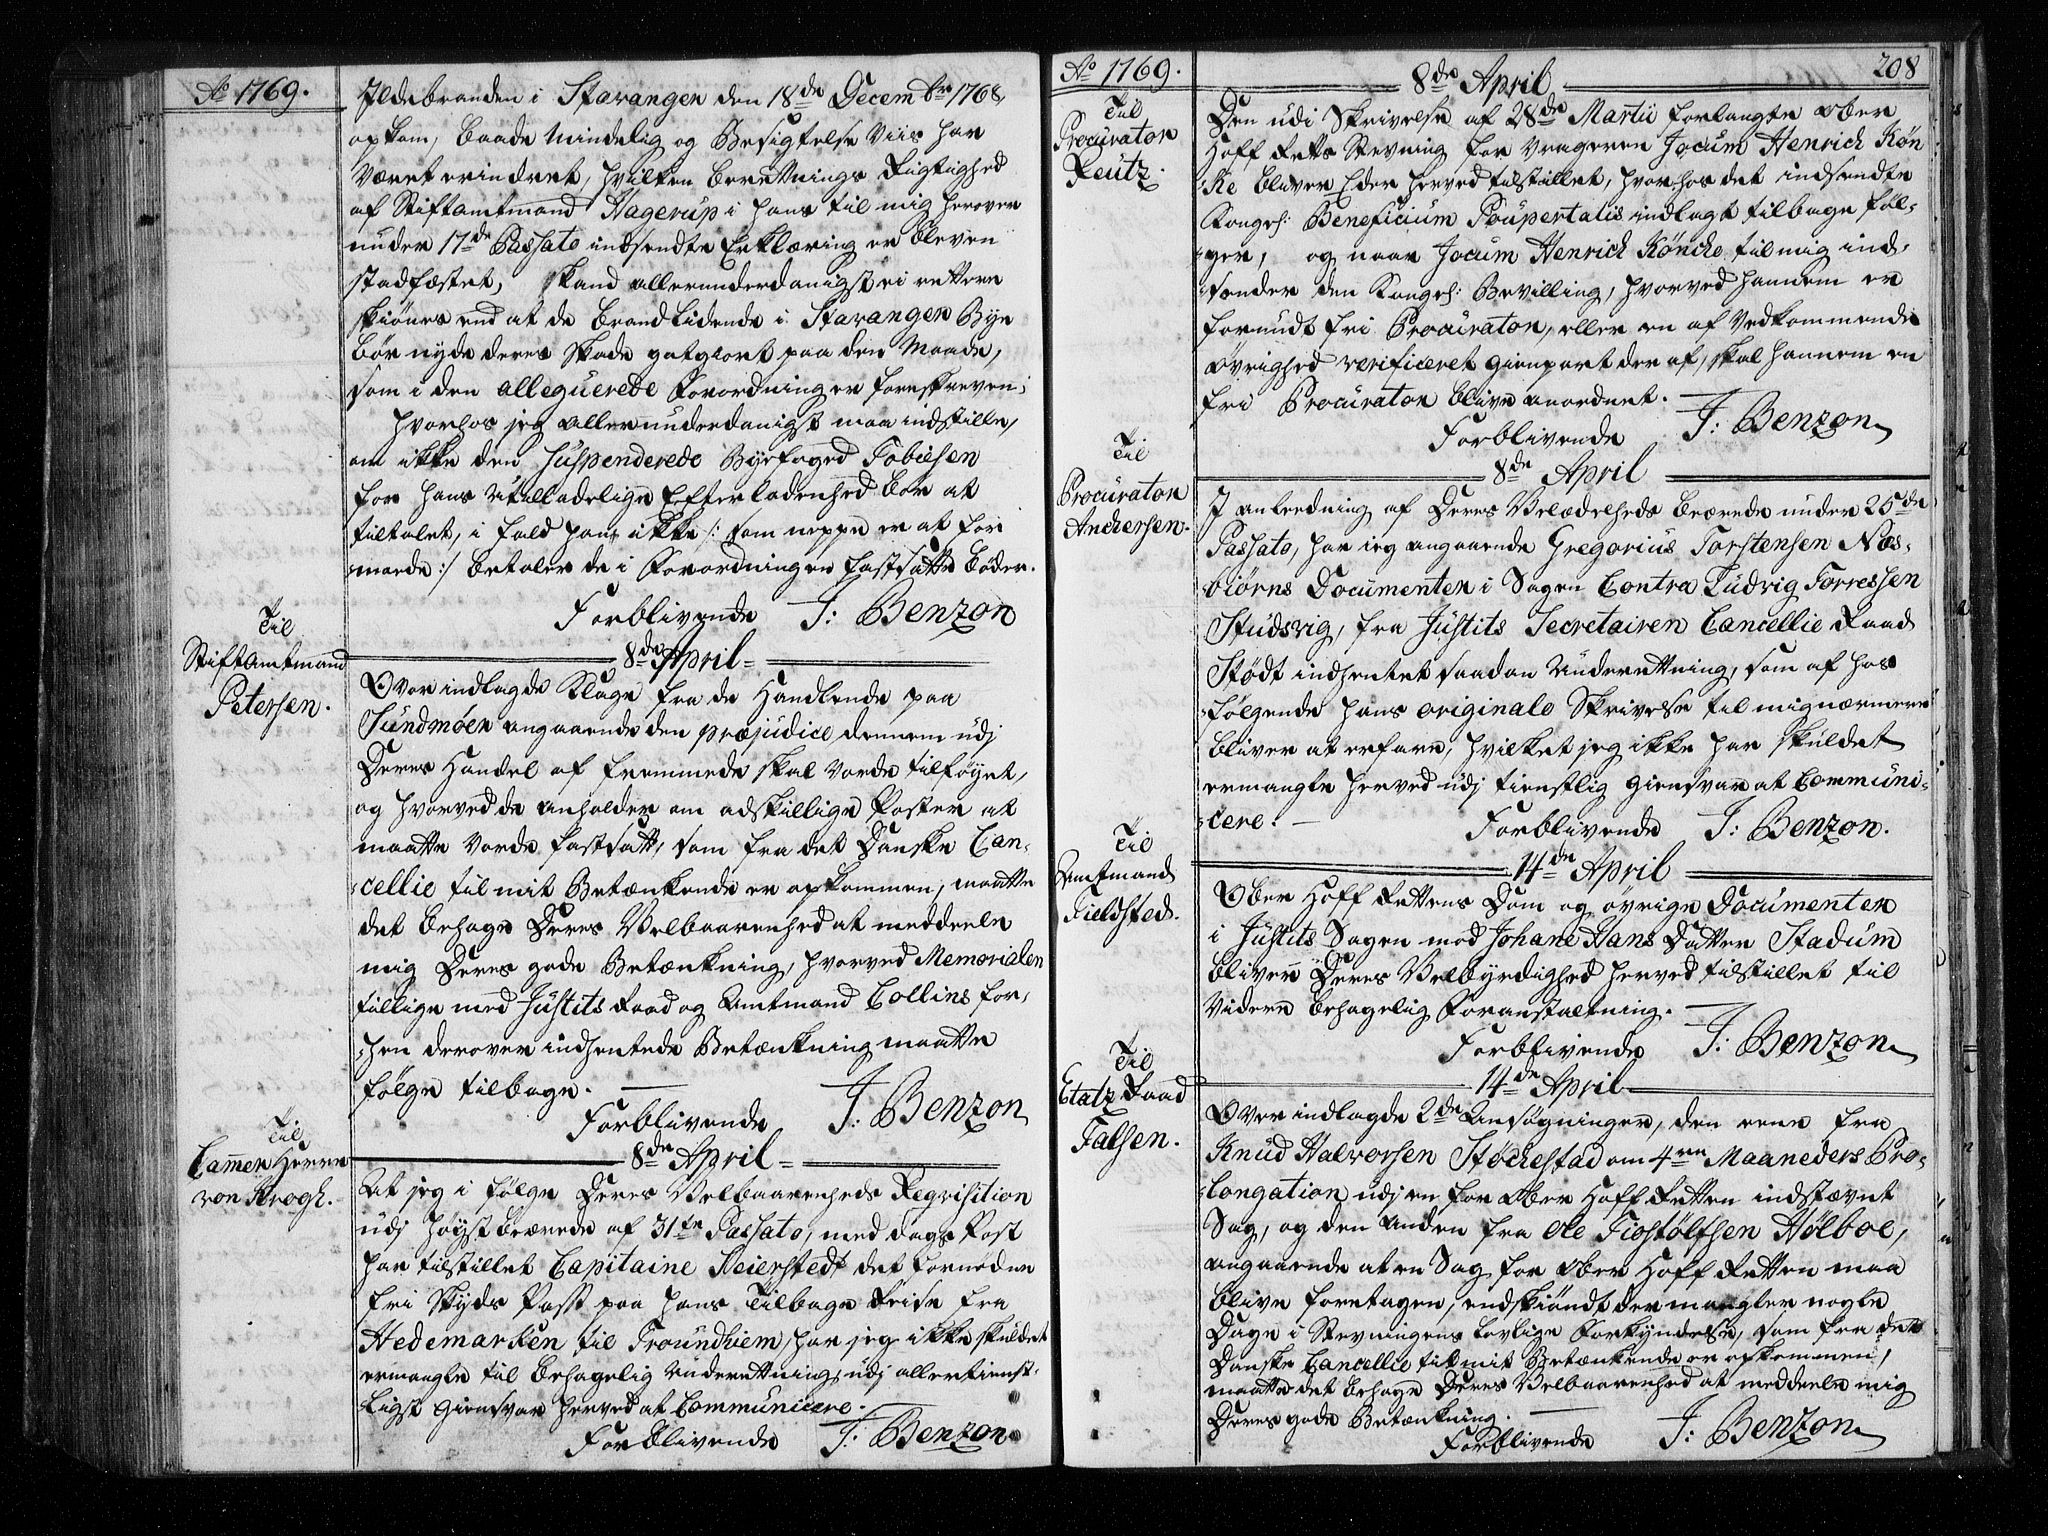 Ao 1769.
Ildebranden i Stavanger den 18de Decembr 1768,
opkom, baade Mindelig og Besigtelse Viis har
Været erindret, hvilken Berettnings Rigtighed
af Stiftamtmand Hagerup i hans til mig herover
under 17de Passato indsendte Erklæring er bleven
stadfæstet, skand allerunderdanigst ei rettere
skiønes end at de Brandlidende i Stavanger Bye
bør nyde deres Skade gotgiort paa den Maade,
som i den alleguerede Forordning er foreskreven;
hvorhos jeg allerunderdanigst maa indstille,
om ikke den Suspenderede Byefoged Tobiesen
for hans Utilladelige Efterladenhed bør at
tiltales, i fald han ikke /: som neppe er at for
mode :/ betaler de i Forordningen fastsatte bøder.
Forblivende J: Benzon
Til
Stiftamtmand
Petersen.
8de April
Over indlagde Klage fra de Handlende paa
Sundmøer angaaende den præjudice, dennem udj
Deres Handel af fremmede skal vorde tilføyet,
og hvorved de anholder om adskillige Poster at
maatte vorde fastsatt, som fra det Danske Can-
cellie til mit Betænkende er opkommen, maatte
det behage Deres Velbaarenhed at meddeele
mig Deres gode Betænkning, hvorved Memorialen
tillige med Justits Raad og Amtmand Collins for-
hen derover indhentede Betænkning maatte
følge tilbage.
Forblivende J: Benzon
Til
Camer Herre
von Krogh.
8de April
At jeg i følge Deres Velbaarenheds Reqvisition
udj høyst beærede af 31te Passato, med dags Post
har tilstillet Capitaine Heierstedt det fornødne
fri Skyds Pass paa hans Tilbage Reise fra
Hedemarken til Troundhiem, har jeg ikke skuldet
ermangle til behagelig Underrettning, udj allertienst-
ligst Giensvar herved at Communicere.
Forblivende J: Benzon
Ao 1769.
208
8de April
Til
Procurator
Reutz.
Den udi Skrivelse af 28de Martii forlangte Ober
Hoff Retts Stevning for Vrageren Jocum Henrich Køn
ke bliver Eder herved tilstillet, hvorhos det indsendte
Kongel: Beneficium Poupertatis indlagt tilbage føl-
ger, og naar Jocum Henrich Køncke til mig ind-
sender den Kongel: Bevilling, hvorved hannem er
forundt fri Procurator, eller en af Vedkommende
Øvrighed verificeret Gienpart deraf, skal hannem en
fri Procurator blive anordnet.
Forblivende J: Benzon
Til
Procurator
Anchersen.
8de April
I anledning af Deres Velædelheds beærede under 25de
Passato, har ieg angaaende Gregorius Torstensen Næs-
biørns Documenter i Sagen Contra Ludvig Torressen
Studsvig, fra Justits Secretairen Cancellie Raad
Stødt indhentet saadan Underrettning, som af hos
følgende hans originale Skrivelse til mig nærmere
bliver at erfare, hvilket jeg ikke har skuldet
ermangle herved udj tienstlig Giensvar at Communi-
cere.
Forblivende J: Benzon.
Til
Amtmand
Fieldsted.
14de April
Ober Hoff Rettens Dom og øvrige Documenter
i Justits Sagen mod Johane Hans Datter Stadum
bliver Deres Velbyrdighed herved tilstillet til
Videre behagelig Foranstaltning.
Forblivende J: Benzon
Til
Etatz Raad
Falsen.
14de April
Over indlagde 2de Ansøgninger, den eene fra
Knud Halvorsen Støchestad om 4re Maaneders Pro-
longation udj en for Ober Hoff Retten indstævnt
Sag, og den Anden fra Ole Tiostølfsen Hølboe,
angaaende at en Sag for Ober Hoff Retten maa
blive foretagen, endskiøndt der mangler nogle
Dage i Stevningens lovlige Forkyndelse, som fra det
Danske Cancellie til mit Betænkende er opkommen,
maatte det behage Deres Velbaarenhed at meddeele mig
Deres gode Betænkning.
Forblivende J: Benzon